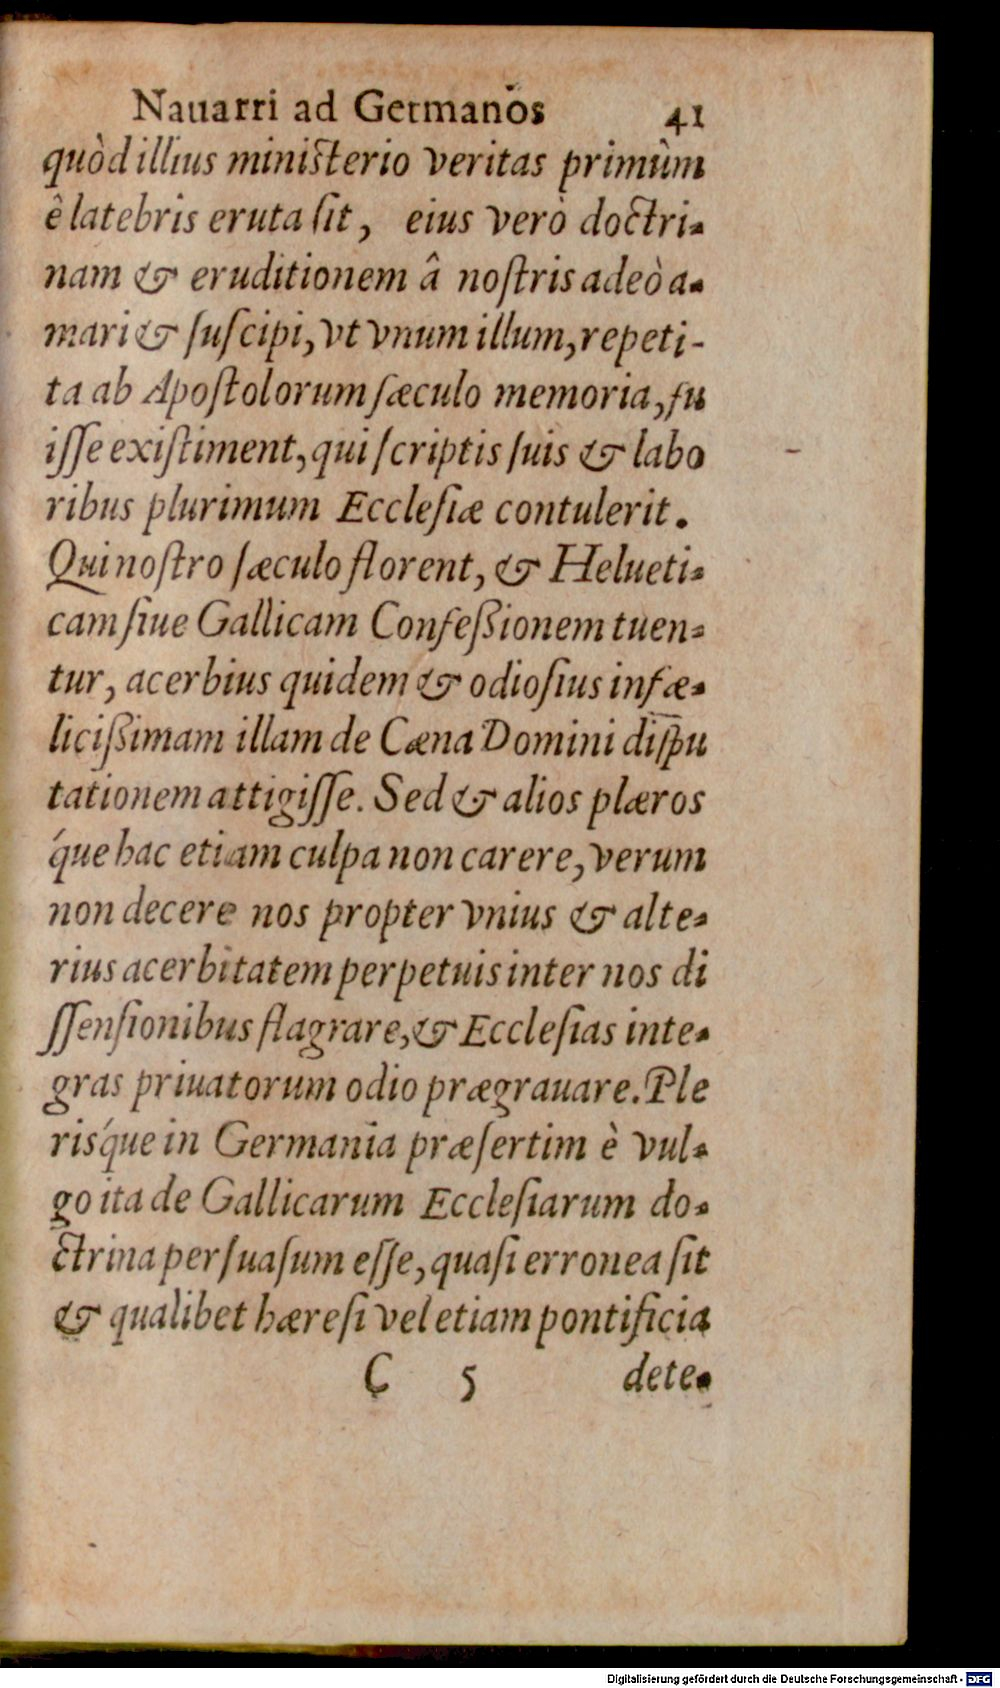 Nauarri ad Germanos 41
quòd illius ministerio veritas primùm
ê latebris eruta ſit, eius verò doctri-
nam & eruditionem â noſtris adeò a-
mari & ſuſcipi, vt vnum illum, repeti-
ta ab Apoſtolorum ſæculo memoria, fu
iſſe exiſtiment, qui ſcriptis ſuis & labo
ribus plurimum Eccleſiæ contulerit.
Qui noſtro ſæculo florent, & Helueti-
cam ſiue Gallicam Confeßionem tuen-
tur, acerbius quidem & odioſius infæ-
licißimam illam de Cæna Domini diſpu
tationem attigiſſe. Sed & alios plæros
q́ue hac etiam culpa non carere, verum
non decere nos propter vnius & alte-
rius acerbitatem perpetuis inter nos di
ſſenſionibus flagrare, & Eccleſias inte-
gras priuatorum odio prægrauare. Ple
risq́ue in Germania præſertim è vul-
go ita de Gallicarum Eccleſiarum do-
ctrina perſuaſum eſſe, quaſi erronea ſit
& qualibet hæreſi vel etiam pontificia
C 5 dete-
Digitalisierung gefördert durch die Deutsche Forschungsgemeinschaft - DFG